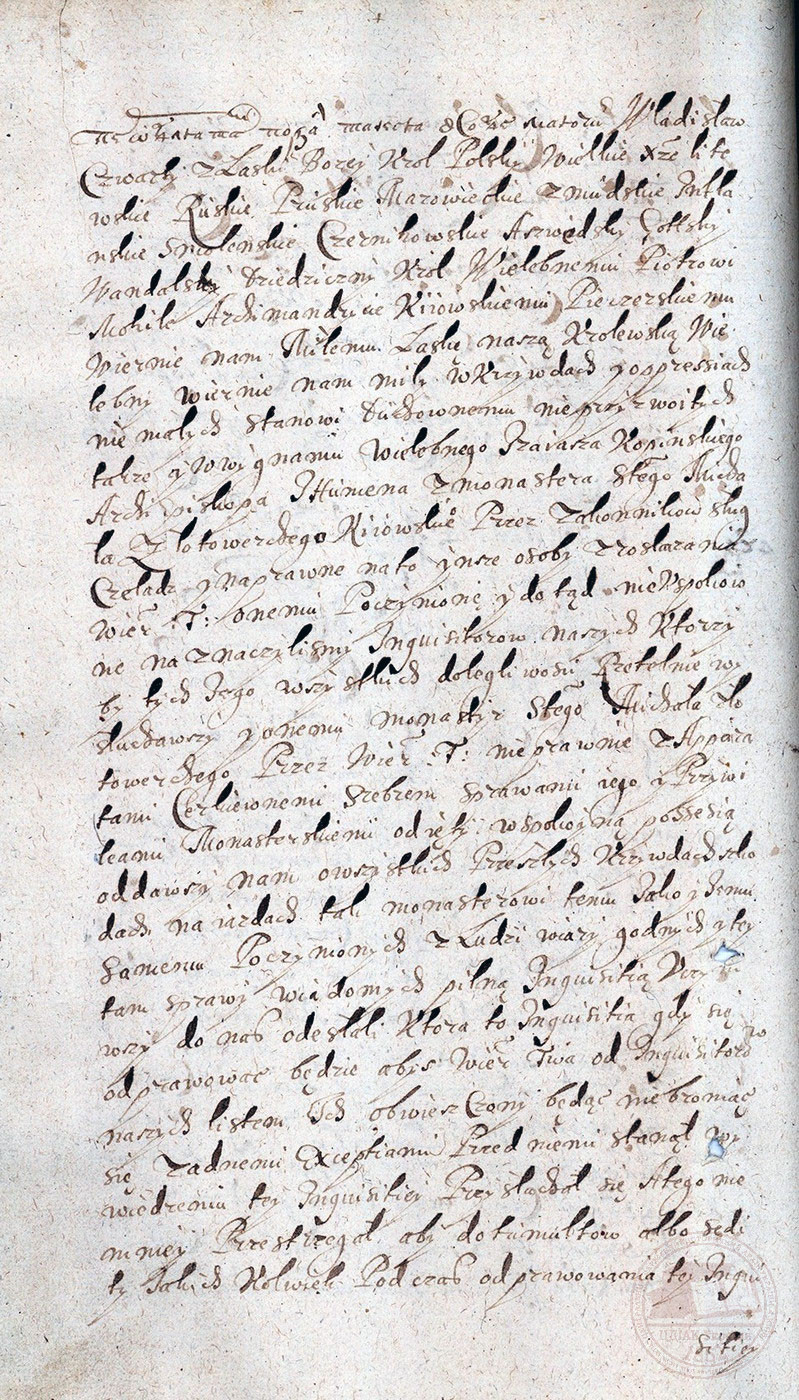 Władisław
Czwarty z Łaski Bozey Krol Polsky Wielkie xże lite
wskie Ruskie Pruskie Mazowieckie Zmudskie Infla
nskie Smolenskie Czernikowskie Aszwedsky Gottsky
Wandalsky Dziedziczny Krol Wielebnemu Piotrowi
Mohile Archimandricie Kiiowskiemu Pieczerskiemu
Wiernie nam Miłemu Łaskę naszą Krolewską Wie
lebny wiernie nam miły w Krzywdach y oppressiach
nie małych stanowi Duchownemu nieprzyzwoitych
takze y w wygnaniu Wielebnego Izaiasza Kopinskiego
Archi pískopa Ihumena z monastera Stego Micha
ła Złotowerchego Kiiowskie Przez zakonnikow sług
Czeladz y naprawne na to y insze osoby z roskazania
Wier: T: onemu Poczynionę y dotąd nie Vspokoio
ne naznaczylismy Inquisitorow naszych Ktorzy
by tych Jego wszystkich dolegliwosci Rzetelnie wy
słuchawszy y onemu monastyr Stego Michała Zło
towerchego Przez Wier: T: nieprawnie z Appara
tami Cerkiewnemi srebrem sprawami iego y Przywi
leami Monasterskiemi odięty w spokoyną possesią
oddawszy nam o wszystkich Przeszłych Krzywdach szko
dach naiazdach tak monasterowi temu Jako y Jemu
samemu Poczynionych z Ludzi wiary godnych y tey
tam sprawy wiadomych pilną Inquisitią Vczyni
wszy do nas odesłali Ktora to Inquisitia gdy się
odprawowac będzie abys Wier Twa od Inquisitorow
naszych listem Ich obwiesczony będąc nie broniąc
się zadnemi Exceptiami Przed niemi stanął wy
wiedzeniu tey Inquisitiey Przysłuchał się A tego nie
mniey Przestrzegał aby do tumultow albo sedi
ty Jakich Kolwiek Pod czas odprawowania tey Inqui
sitiey